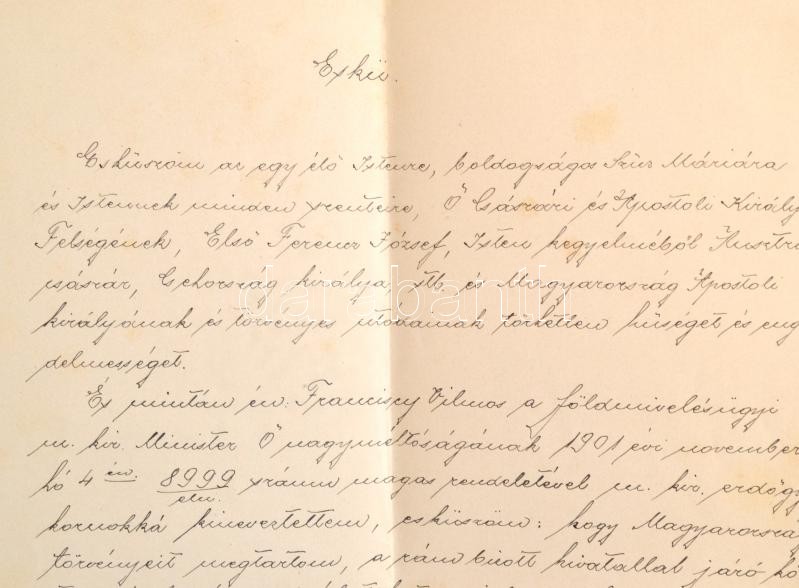 Eskü.
Esküszöm az egy élő Istenre, boldogságos Szűz Máriára
és Istennek minden szenteire, Ő Császári és Apostoli Király
Felségének, Első Ferencz József, Isten kegyelméből Ausztri
császár, Csehország királya, stb. és Magyarország Apostoli
királyának és törvényes utódainak törhetlen hűséget és eng
delmességet.
És miután én: Franciscy Vilmos a földmivelésügyi
m. kir. Minister Ő nagyméltóságának 1901 évi november
hó 4 én: 8999/eln. számu magas rendeletével m. kir. erdőgy
kornokká kineveztettem, esküszöm: hogy Magyarorszá
törvényeit megtartom, a rám bizott hivatallal járó kö
darabanth